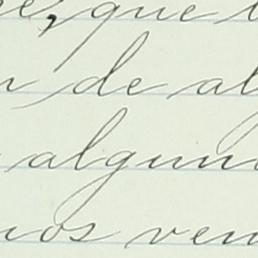 que
de al
algun
os ven